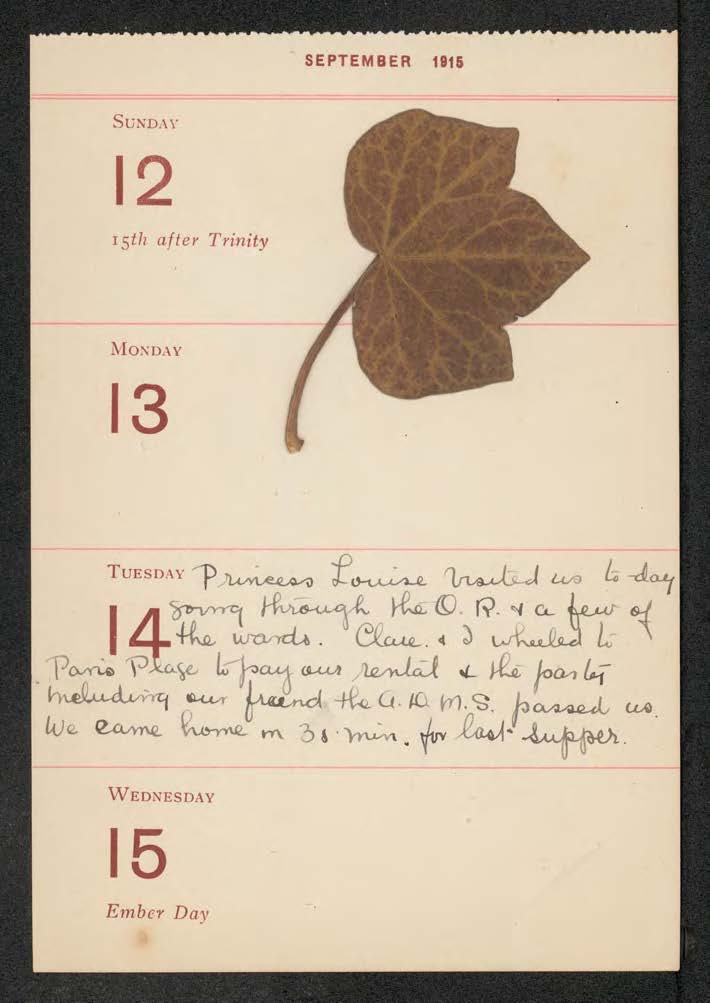 SEPTEMBER 1915
SUNDAY
12
15th after Trinity
MONDAY
13
TUESDAY Princess Louise visited us to-day
14 going through the O. R. & a few of
the wards. Clare. & I wheeled to
Paris Plage to pay our rental & the party
including our friend the A. D. M. S. passed us.
We came home in 30 min. for last supper.
WEDNESDAY
15
Ember Day